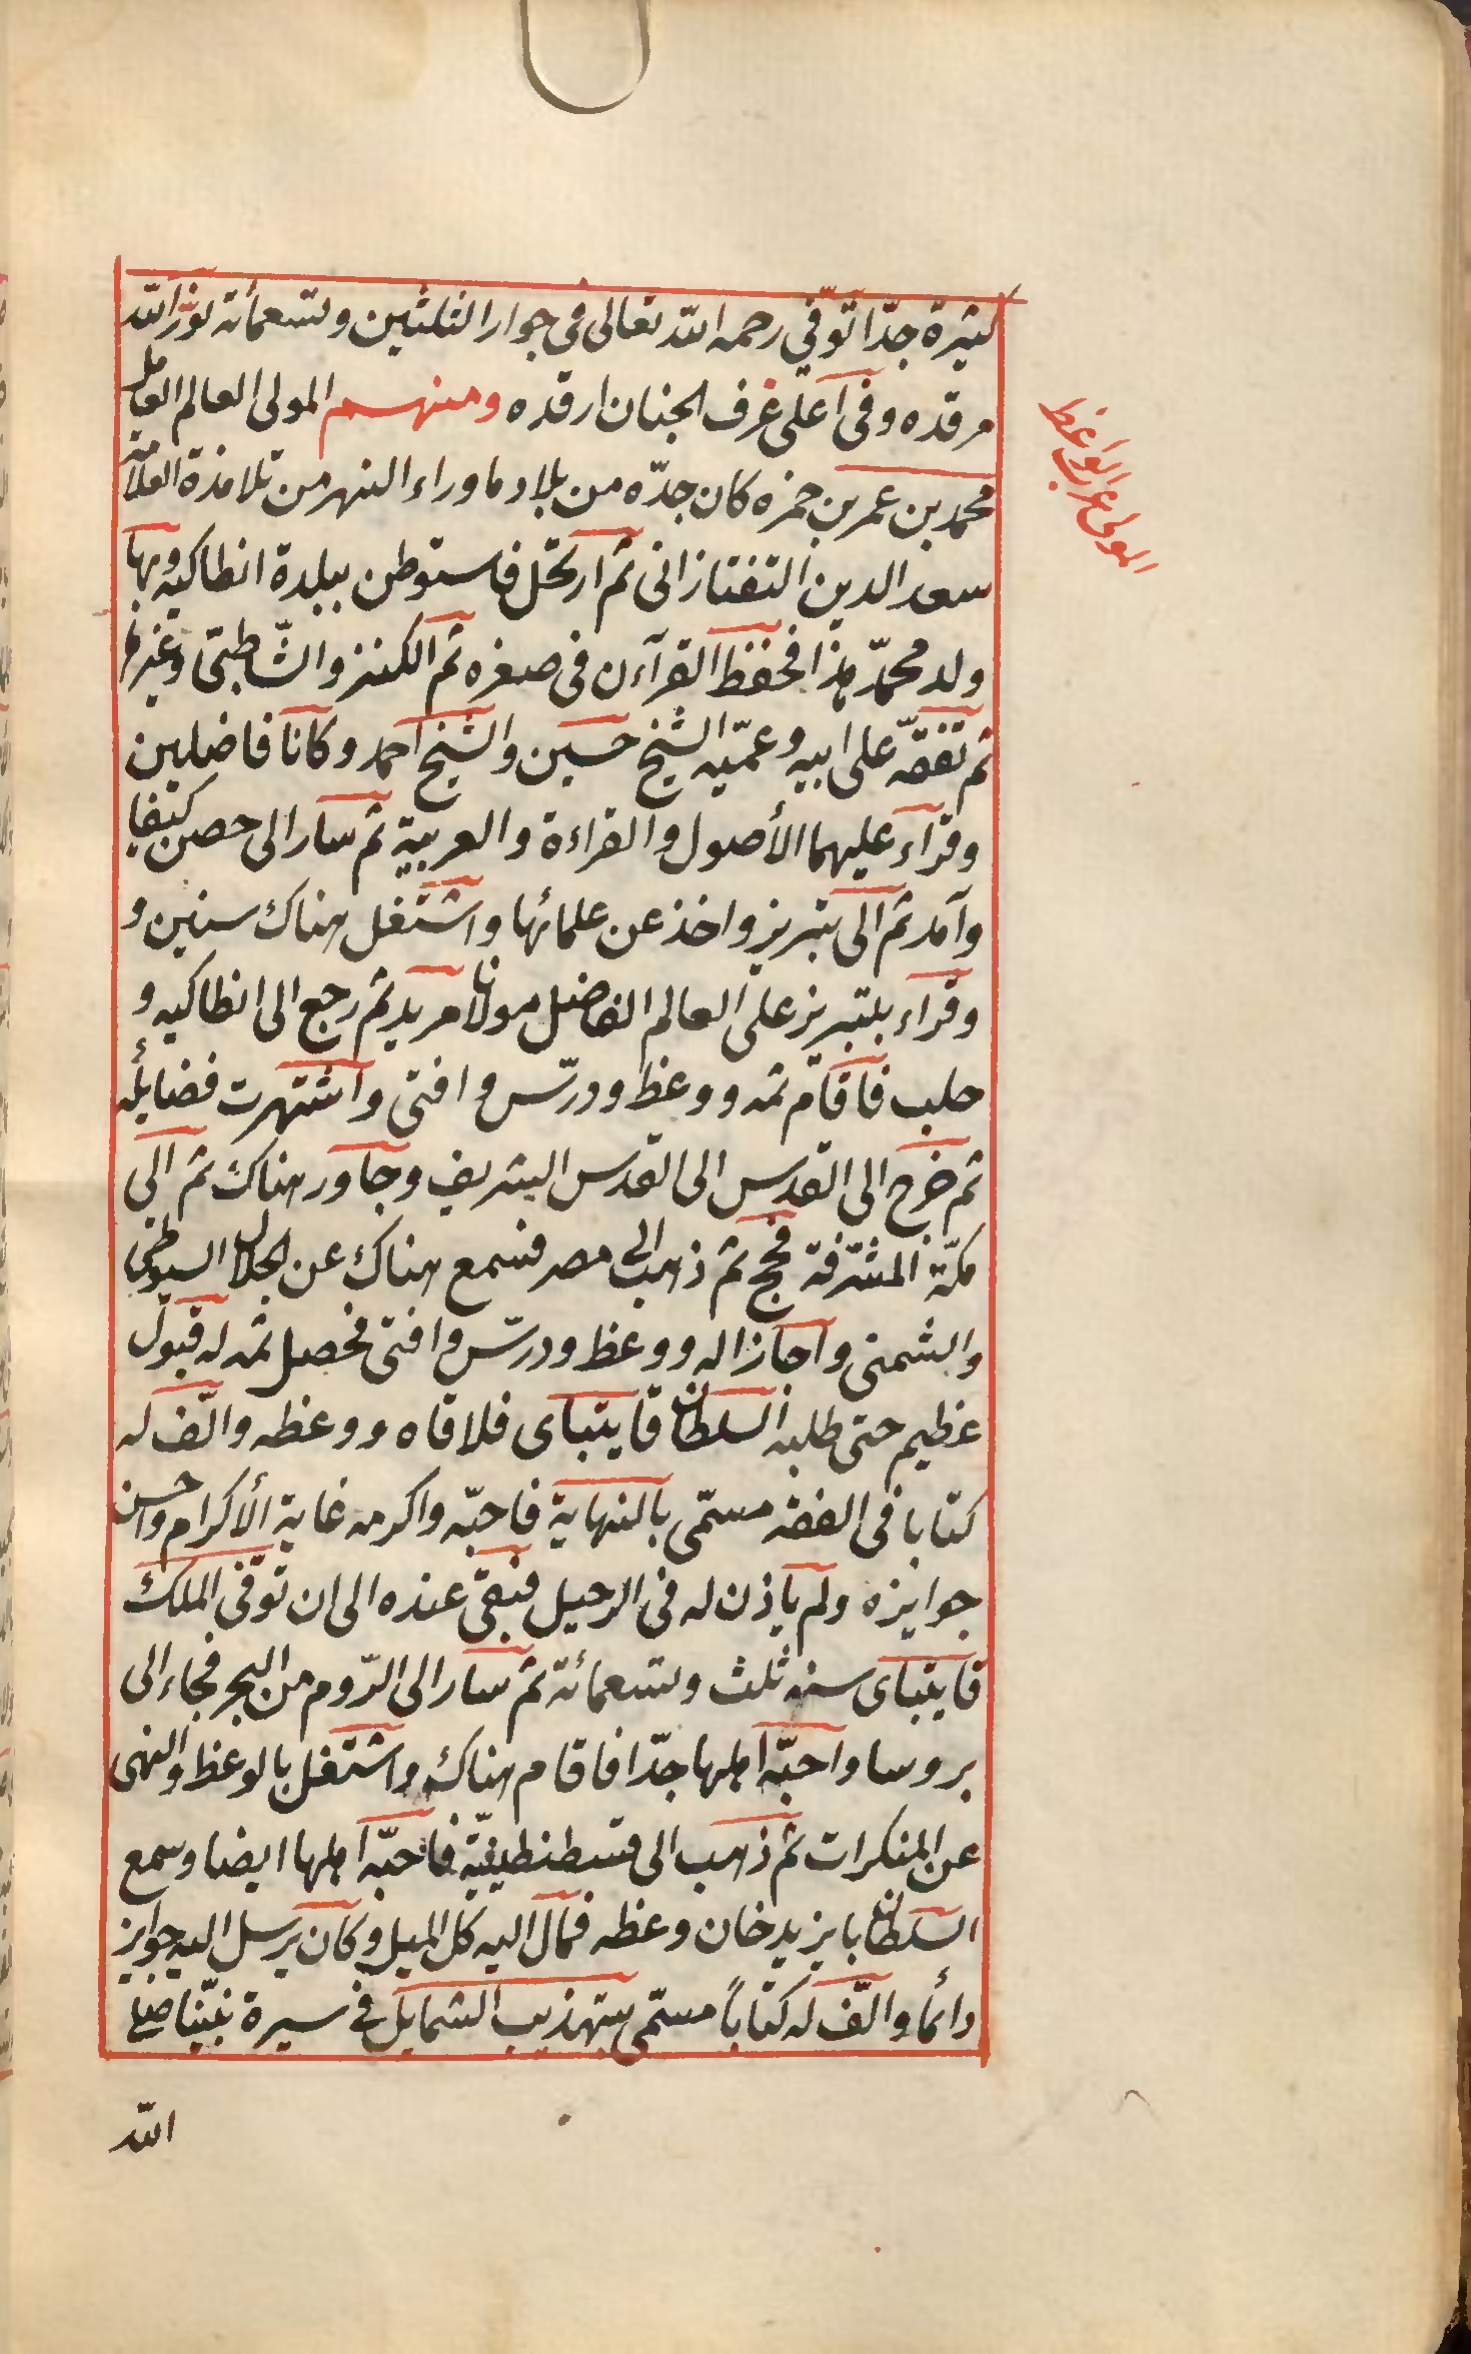 كثيرة جدّا توّفي رحمه الله تعالى في جوار الثلثين وتسعمائة نوّر الله
مرقده وفي أعلى غرف الجنان ارقده ومنهم المولى العالم العامل
المولى عرب الواعظ
محمد بن عمر بن حمزه كان جدّه من بلاد ماوراء النهر من تلامذة العلامة
سعد الدين التفتازانى ثم ارتحل فاستوطن ببلدة انطاكيه وبها
ولد محمدّ هذا فحفظ القرآءن فى صغره ثم الكنز والشّاطبىّ وغيرها
ثم تفقّه على ابيه وعمّيه الشيخ حسين والشيخ احمد وكانا فاضلين
وقرآء عليهما الأصول والقراءة والعربية ثم سار الى حصن كيفا
وآمد ثم الى تبريز واخذ عن علمائها واشتغل هناك سنين و
وقراء بتبريز على العالم الفاضل مولانا مريد ثم رجع الى انطاكيه و
حلب فاقام ثمه ووعظ ودرّس وافتى واشتهرت فضائله
ثم خرج الى القدس الى القدس الشريف وجاور هناك ثم الى
مكّة المشرّفة فحج ثم ذهب الى مصر فسمع هناك عن الجلال السيوطى
والشمنى واجازا له ووعظ ودرّس وافتى فحصل ثمه له قبول
عظيم حتى طلبه السلطان قايتباى فلاقاه ووعظه والّف له
كتابا فى الفقه مسمّى بالنهاية فاحبّه واكرمه غاية الأكرام واحسن
جوايزه ولم ياذن له فى الرحيل فبقى عنده الى ان توّفى الملك
قايتباى سنه ثلث وتسعمائة ثم سار الى الرّوم من البحر فجاء الى
بروسا واحبّه اهلها جدّا فاقام هناك واشتغل بالوعظ والنهى
عن المنكرات ثم ذهب الى قسطنطينيّة فاحبّه اهلها ايضا وسمع
السلطان بايزيد خان وعظه فمال اليه كل الميل وكان يرسل اليه جوايز
دائما والّف له كتاباً مسمّى بتهذيب الشمايل في سيرة نبيّنا صلى
الله